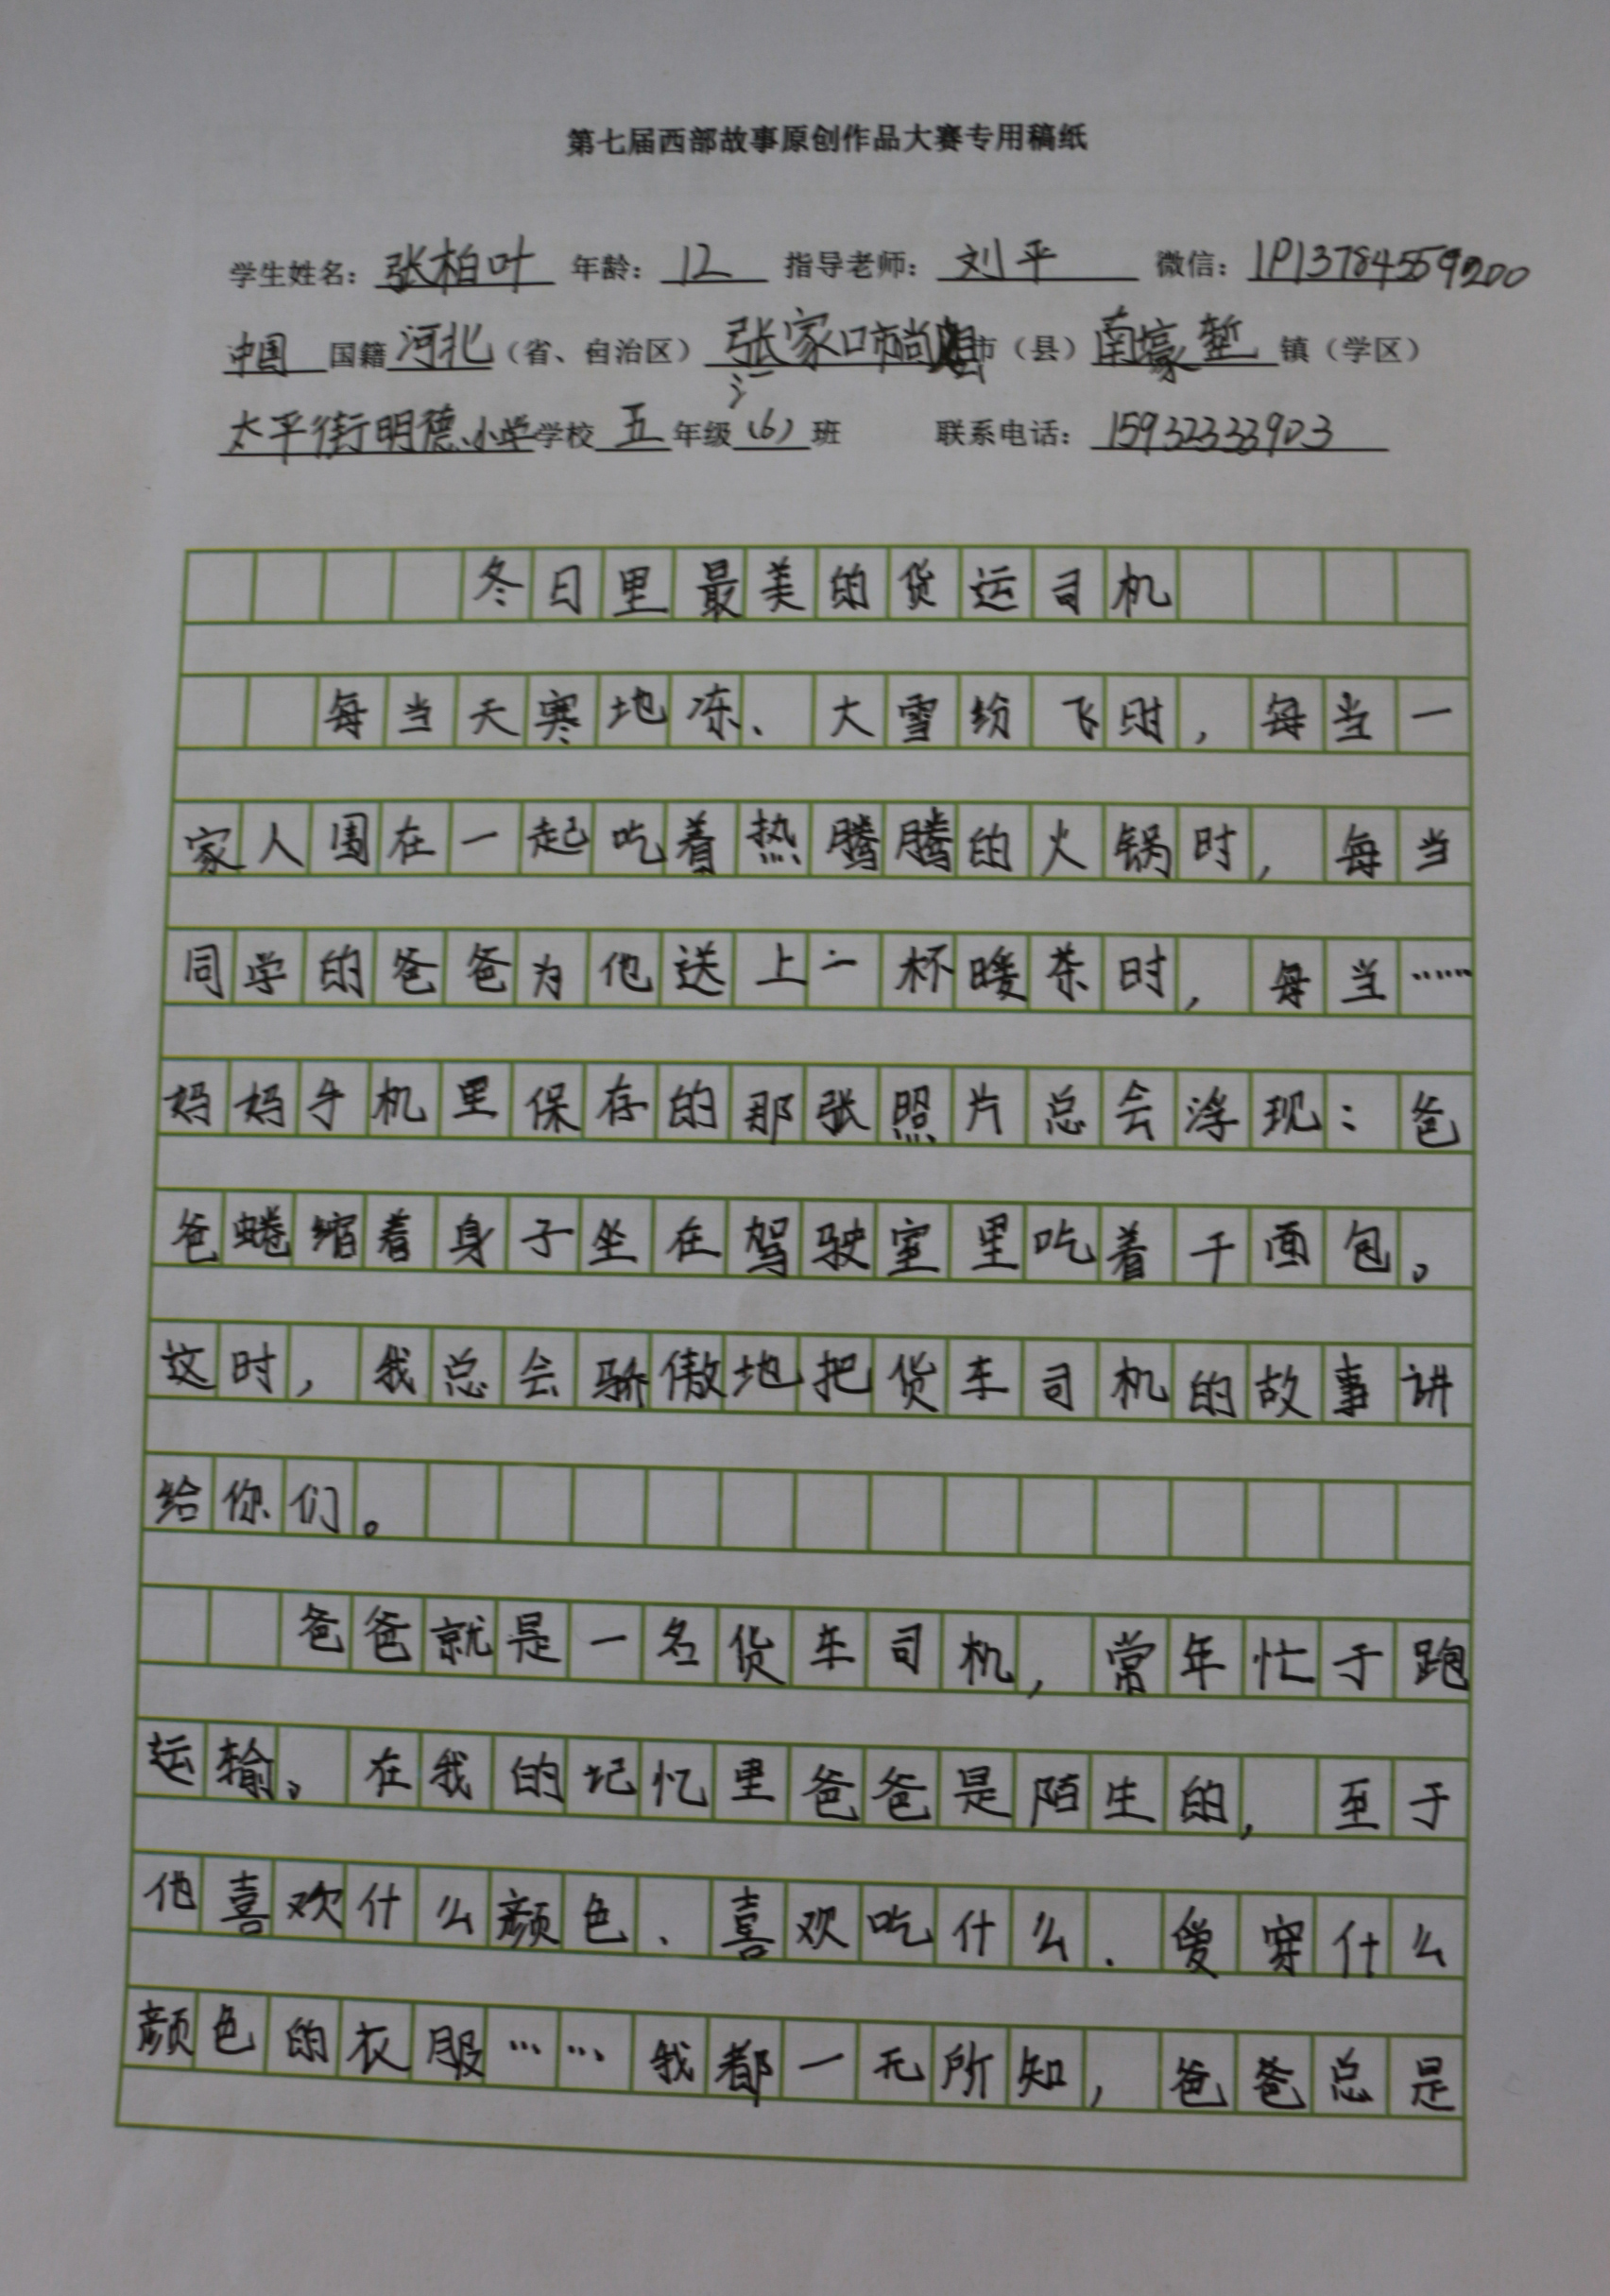 第七届西部故事原创作品大赛专用稿纸
学生姓名：张柏叶 年龄：12 指导老师：刘平 微信：1P13784559200
中国 国籍 河北（省、自治区）张家口市尚义县市（县）南壕堑 镇（学区）
太平街明德小学学校 五 年级（6）班 联系电话：15932333903
冬日里最美的货运司机
每当天寒地冻、大雪纷飞时，每当一
家人围在一起吃着热腾腾的火锅时，每当
同学的爸爸为他送上一杯暖茶时，每当……
妈妈手机里保存的那张照片总会浮现：爸
爸蜷缩着身子坐在驾驶室里吃着干面包。
这时，我总会骄傲地把货车司机的故事讲
给你们。
爸爸就是一名货车司机，常年忙于跑
运输。在我的记忆里爸爸是陌生的，至于
他喜欢什么颜色、喜欢吃什么、爱穿什么
颜色的衣服……我都一无所知，爸爸总是